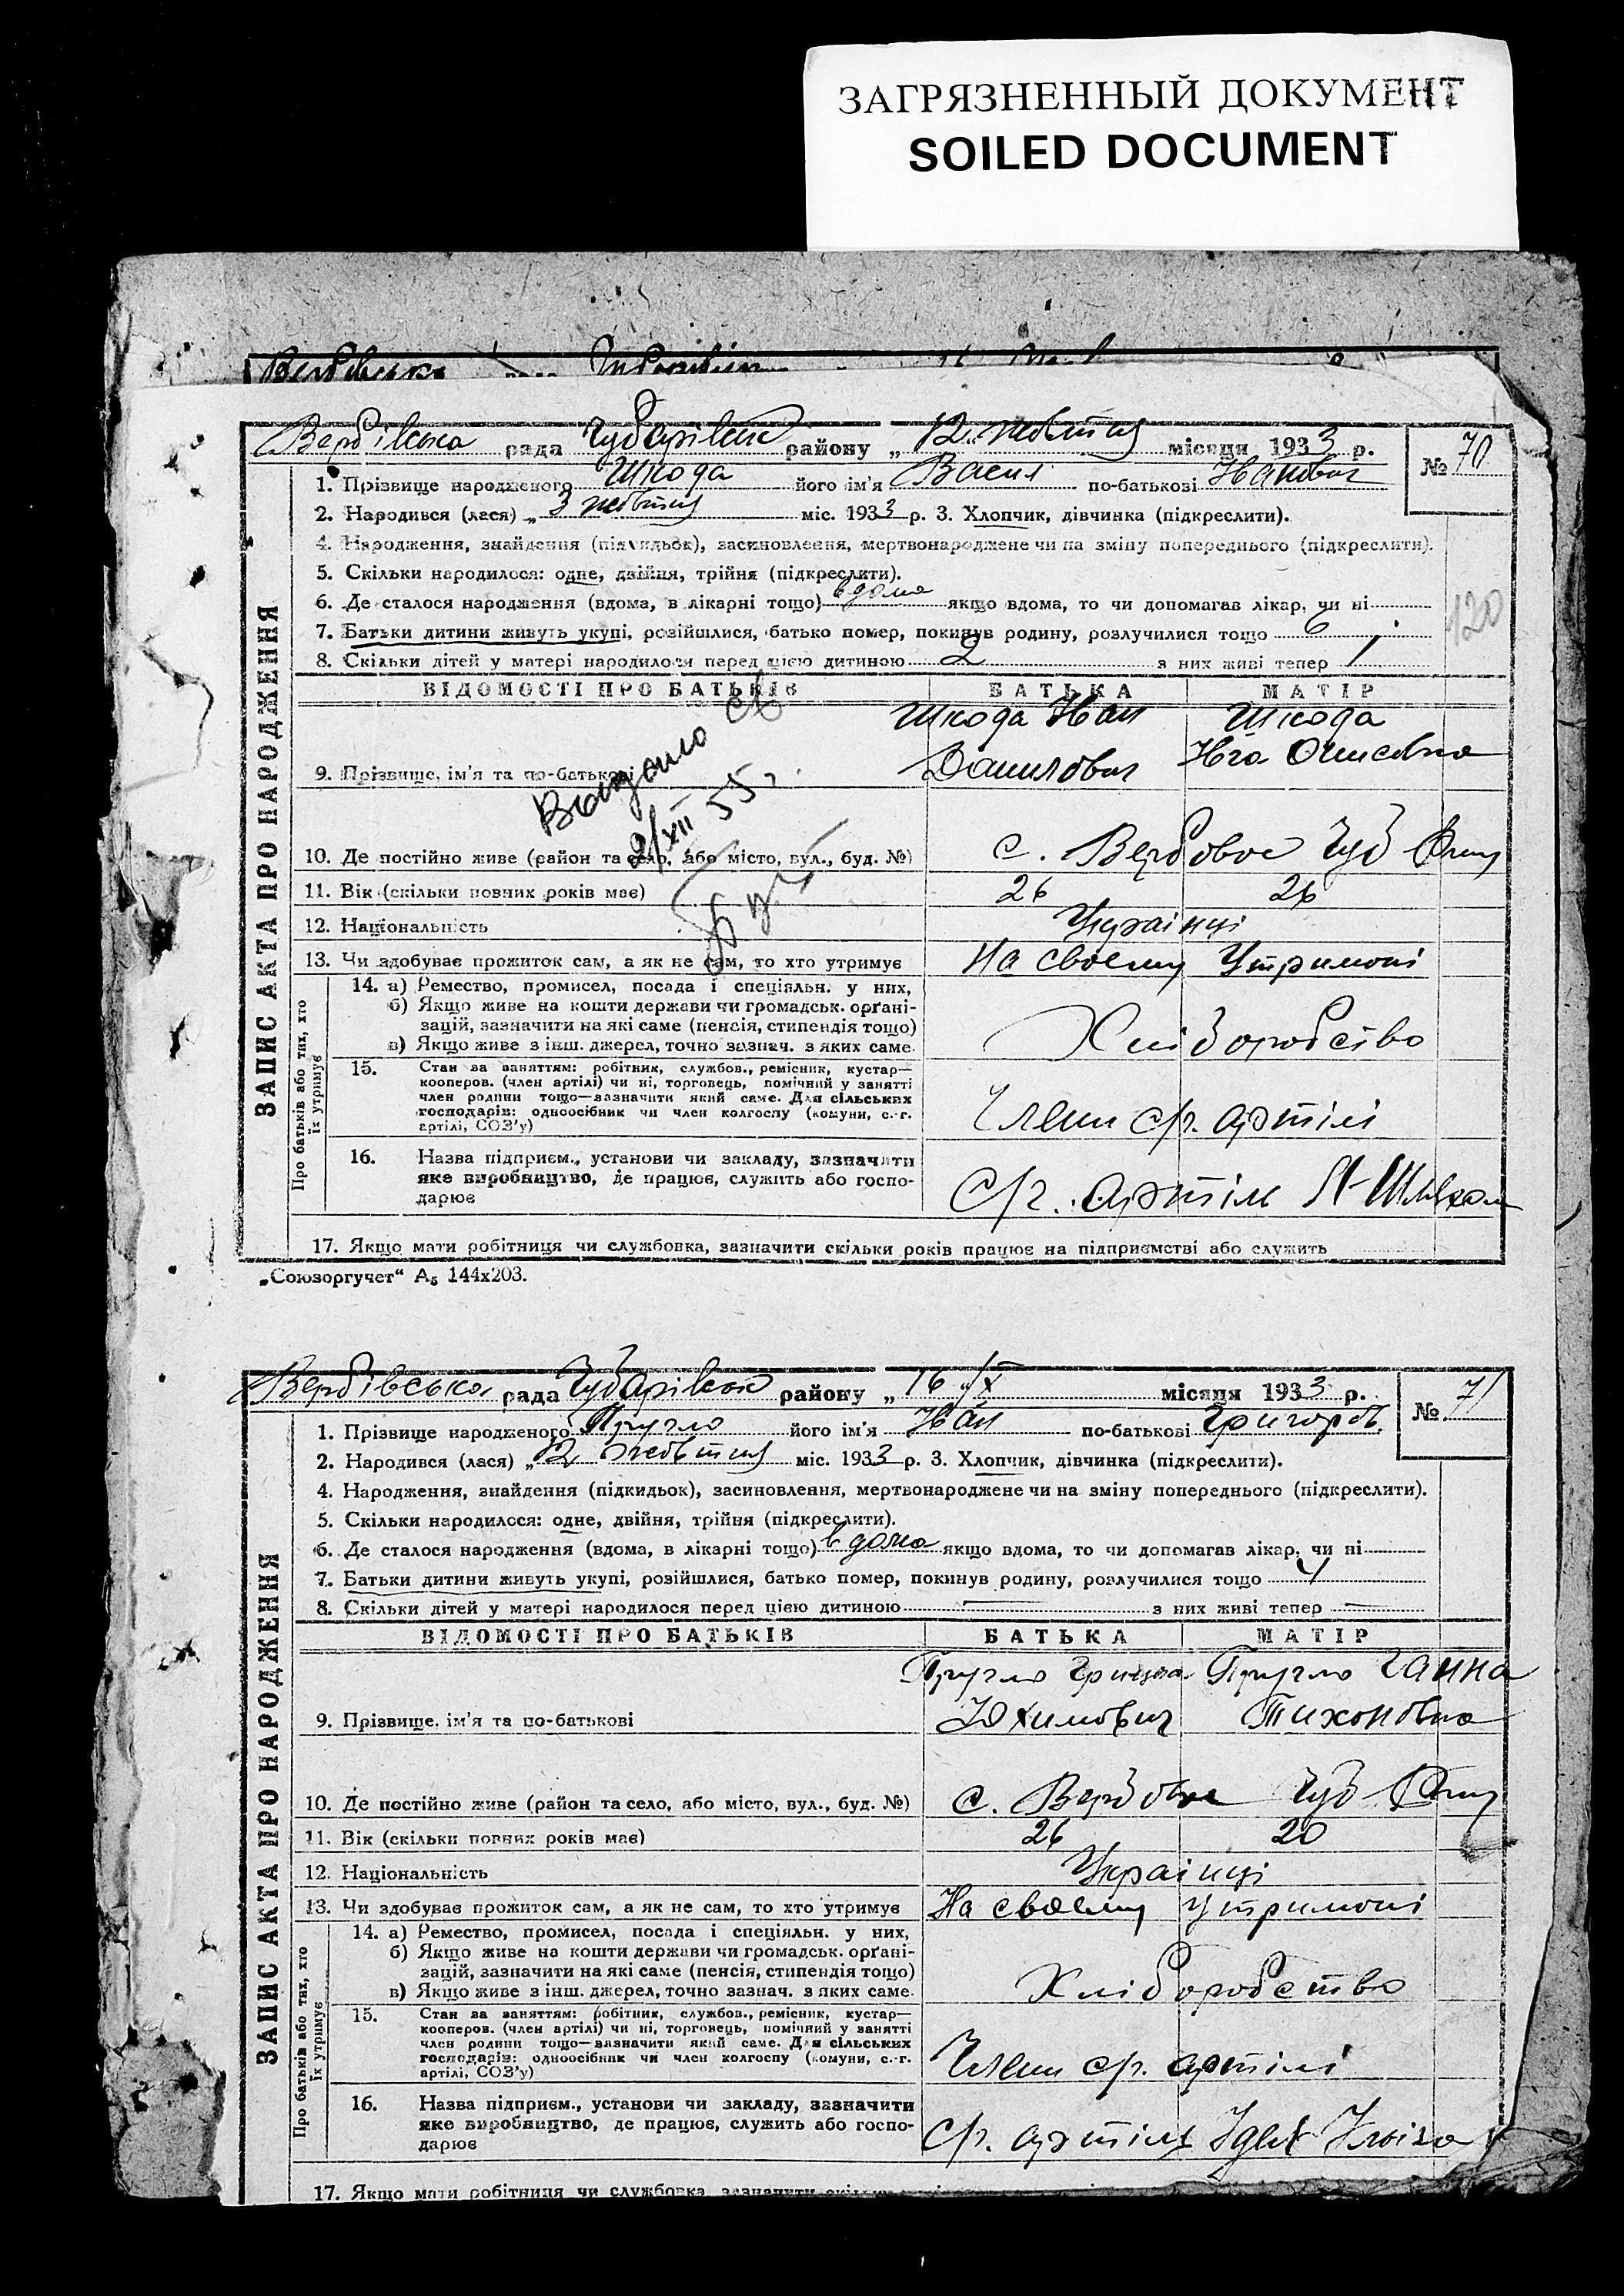 ЗАГРЯЗНЕННЫЙ ДОКУМЕНТ
SOILED DOCUMENT
Вербівська рада Чубарівськ району „12„ жовтня місяця 1933 р.
№ 70
1. Прізвище народженого Шкода його ім'я Васил по-батькові Іванович
2. Народився (лася) „ 3 жовтня міс. 1933 р. 3. Хлопчик, дівчинка (підкреслити).
4. Народження, знайдення (підкидьок), засиновлення, мертвонароджене чи на зміну попереднього (підкреслити).
5. Скільки народилося: одне, двійня, трійня (підкреслити).
6. Де сталося народження (вдома, в лікарні тощо) вдома якщо вдома, то чи допомагав лікар, чи ні
7. Батьки дитини живуть укупі, розійшлися, батько помер, покинув родину, розлучилися тощо 6
8. Скільки дітей у матері народилося перед цією дитиною 2 з них живі тепер 1
120
ЗАПИС АКТА ПРО НАРОДЖЕННЯ
ВІДОМОСТІ ПРО БАТЬКІВ БАТЬКА МАТІР
Шкода Іван Шкода
9. Прізвище, ім'я та по-батькові Данилович
Видано св
2/XII 55 г.
10. Де постійно живе (район та село, або місто, вул., буд. №) с. Вербовое Чуб
11. Вік (скільки повних років має) 26 26
12. Національність Українці
13. Чи здобуває прожиток сам, а як не сам, то хто утримує На своєму Утримані
Про батьків або тих, хто їх утримує
14. а) Ремество, промисел, посада і спеціяльн. у них,
б) Якщо живе на кошти держави чи громадськ. орґані-
зацій, зазначити на які саме (пенсія, стипендія тощо)
в) Якщо живе з інш. джерел, точно зазнач. з яких саме.
Хліборобство
15. Стан за заняттям: робітник, службов., ремісник, кустар—
кооперов. (член артілі) чи ні, торговець, помічний у занятті
член родини тощо—зазначити який саме. Для сільських
господарів: одноосібник чи член колгоспу (комуни, с.-г.
артілі, СОЗ'у)
Член с/г. артілі
16. Назва підприєм., установи чи закладу, зазначити
яке виробництво, де працює, служить або госпо-
дарює
с/г. артіль
17. Якщо мати робітниця чи службовка, зазначити скільки років працює на підприємстві або служить
„Союзоргучет“ А5 144х203.
Вербівська рада Чубарівськ району „ 16 „/X місяця 1933 р.
№ 71
1. Прізвище народженого його ім'я Іван по-батькові Григоров.
2. Народився (лася) „ 12 жовтня міс. 1933 р. 3. Хлопчик, дівчинка (підкреслити).
4. Народження, знайдення (підкидьок), засиновлення, мертвонароджене чи на зміну попереднього (підкреслити).
5. Скільки народилося: одне, двійня, трійня (підкреслити).
6. Де сталося народження (вдома, в лікарні тощо) вдома якщо вдома, то чи допомагав лікар, чи ні
7. Батьки дитини живуть укупі, розійшлися, батько помер, покинув родину, розлучилися тощо
8. Скільки дітей у матері народилося перед цією дитиною — з них живі тепер —
ЗАПИС АКТА ПРО НАРОДЖЕННЯ
ВІДОМОСТІ ПРО БАТЬКІВ БАТЬКА МАТІР
Ганна
9. Прізвище, ім'я та по-батькові Юхимович Тихоновна
10. Де постійно живе (район та село, або місто, вул., буд. №) с. Вербовое Чуб
11. Вік (скільки повних років має) 26 20
12. Національність Українці
13. Чи здобуває прожиток сам, а як не сам, то хто утримує На своєму утримані
Про батьків або тих, хто їх утримує
14. а) Ремество, промисел, посада і спеціяльн. у них,
б) Якщо живе на кошти держави чи громадськ. орґані-
зацій, зазначити на які саме (пенсія, стипендія тощо)
в) Якщо живе з інш. джерел, точно зазнач. з яких саме.
Хліборобство
15. Стан за заняттям: робітник, службов., ремісник, кустар—
кооперов. (член артілі) чи ні, торговець, помічний у занятті
член родини тощо—зазначити який саме. Для сільських
господарів: одноосібник чи член колгоспу (комуни, с.-г.
артілі, СОЗ'у)
Член с/г. артілі
16. Назва підприєм., установи чи закладу, зазначити
яке виробництво, де працює, служить або госпо-
дарює
с/г. артіль
17. Якщо мати робітниця чи службовка, зазначити